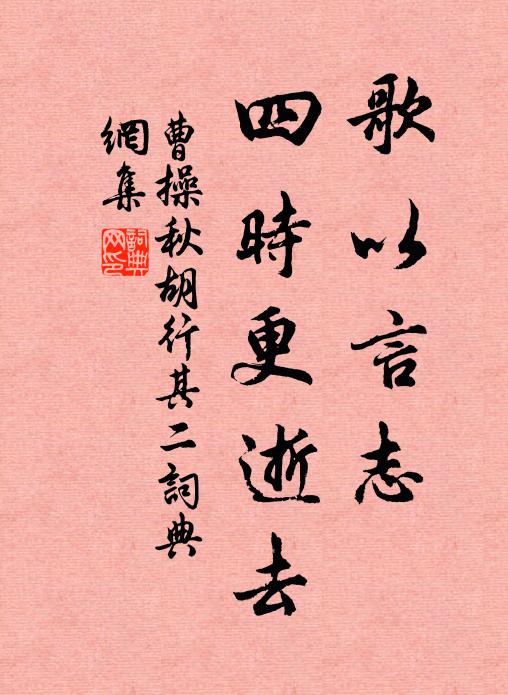 歌以言志
四時更逝去
曹操秋胡行其二詞典
網集
詞典
网印